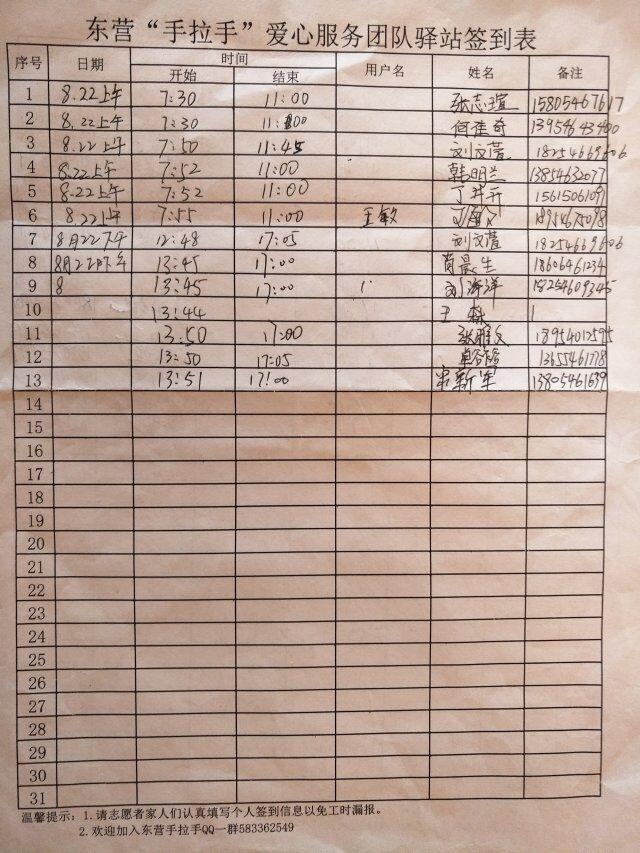 东营“手拉手”爱心服务团队驿站签到表
序号 日期 时间 用户名 姓名 备注
开始 结束
1 8.22上午 7:30 11:00 张志瑄 15805467617
2 8.22上午 7:30 11:00 何佳奇 13954643400
3 8.22上午 7:50 11:45 刘文萱 18254669606
4 8.22上午 7:52 11:00 韩明兰 13854632077
5 8.22上午 7:52 11:00 丁井开 15615061097
6 8.22上午 7:55 11:00 王敏
7 8月22下午 12:48 17:05 刘文萱 18254669606
8 8月22下午 13:45 17:00 肖晨生 18606461234
9 8 13:45 17:00 刘海洋 18254609345
10 13:44 王
11 13:50 17:00 张雅文 18954012595
12 13:50 17:05 13655461778
13 13:51 17:00 新军 13805461639
14
15
16
17
18
19
20
21
22
23
24
25
26
27
28
29
30
31
温馨提示：1.请志愿者家人们认真填写个人签到信息以免工时漏报。
2.欢迎加入东营手拉手QQ一群583362549